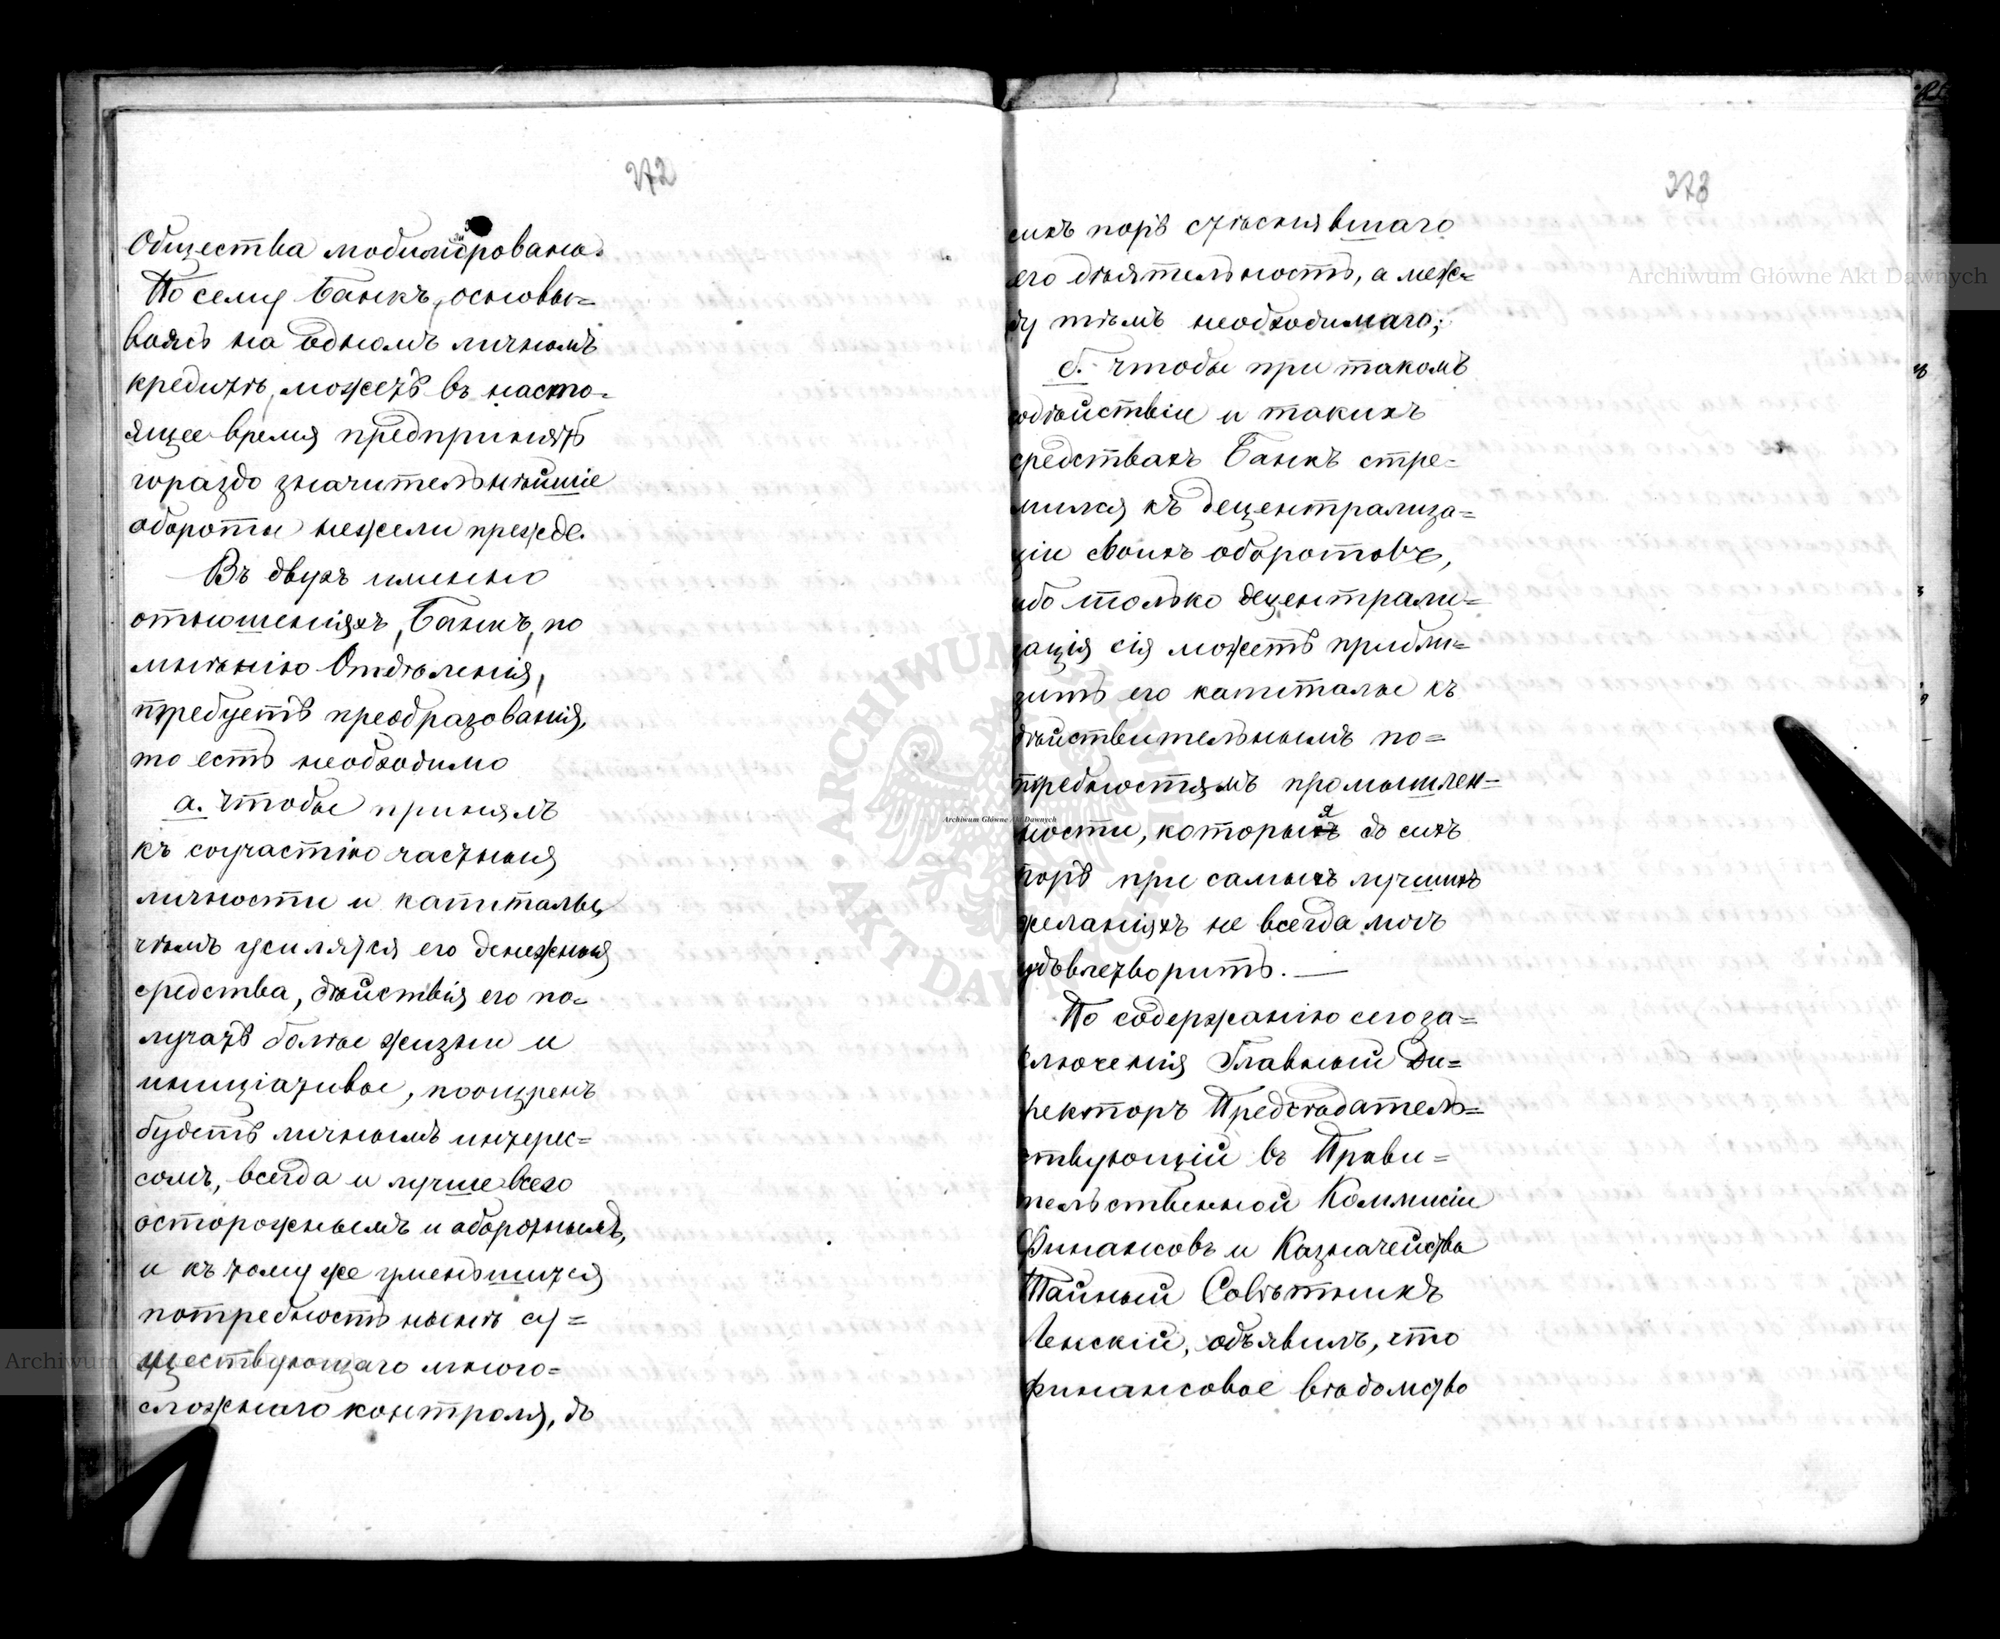 272
Общества мобилизированы.
По сему Банкъ, основы=
ваясь на одномъ личномъ
кредитѣ, можетъ въ насто=
ящее время предпринять
гораздо значительнѣйшіе
обороты нежели прежде.
Въ двухъ именно
отношеніяхъ, Банкъ, по
мнѣнію Отдѣленія,
требуетъ преобразованія,
то есть необходимо
а. чтобы принялъ
къ соучастію частныя
личности и капиталы,
чѣмъ усилятся его денежныя
средства, дѣйствія его по=
лучатъ болѣе жизни и
иниціативы, поощренъ
будетъ личнымъ интерес=
сомъ, всегда и лучше всего
осторожнымъ и оборотнымъ,
и къ тому же уменьшится
потребность нынѣ су=
ществующаго много=
сложнаго контроля, до
273
сихъ поръ стѣснявшаго
его дѣятельность, а меж=
ду тѣмъ необходимаго;
б. чтобы при такомъ
содѣйствіи и такихъ
средствахъ Банкъ стре=
мился къ децентрализа=
ціи своихъ оборотовъ,
ибо только децентрали=
зація сія можетъ прибли=
зить его капиталы къ
дѣйствительнымъ по=
требностямъ промышлен=
ности, которыя до сихъ
поръ при самыхъ лучшихъ
желаніяхъ не всегда могъ
удовлетворить. —
По содержанію сего за=
ключенія Главный Ди=
ректоръ Предсѣдатель=
ствующій въ Прави=
тельственной Коммисіи
Финансовъ и Казначейства
Тайный Совѣтникъ
Ленскій, объявилъ, что
финансовое вѣдомство
Archiwum Główne Akt Dawnych
Archiwum Główne Akt Dawnych
ARCHIWUM GŁÓWNE AKT DAWNYCH